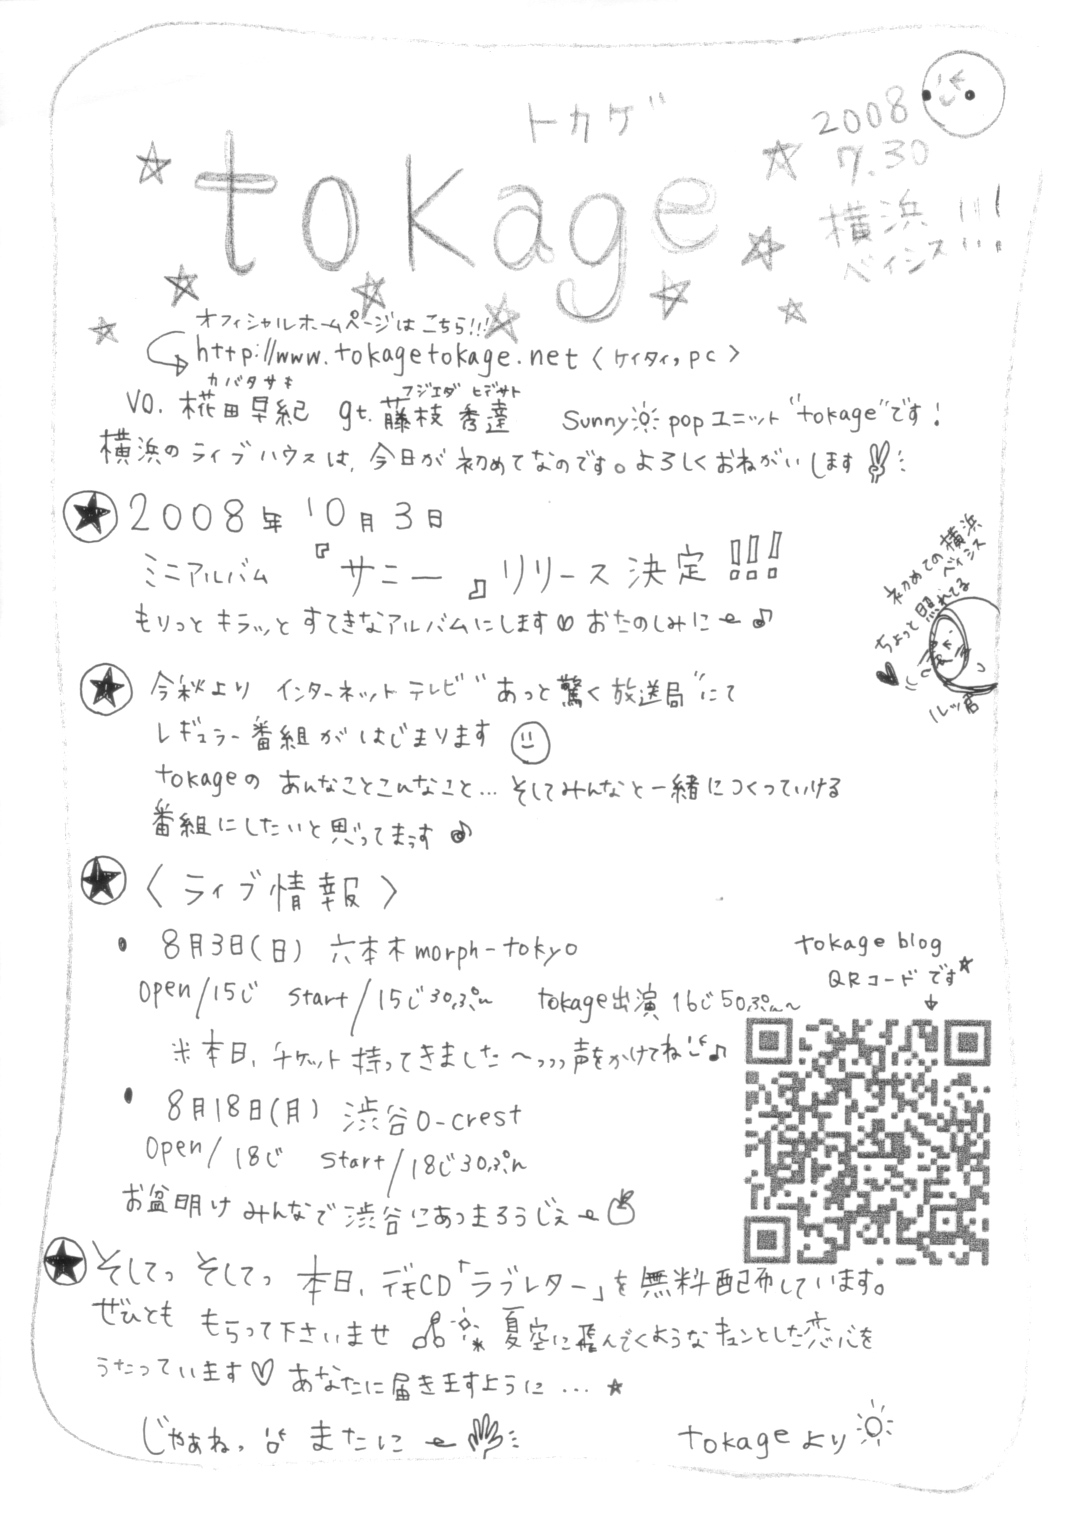 トカゲ
tokage
2008
7.30
横浜
ベイシス!!!
オフィシャルホームページはこちら!!!
http://www.tokagetokage.net〈ケイタイ,pc〉
カバタサキ
フジエダ ヒデサト
vo. 椛田早紀 gt. 藤枝 秀達 sunny pop ユニット"tokage"です!
横浜のライブハウスは、今日が初めてなのです。よろしくおねがいします
★2008年 10月3日
ミニアルバム『サニー』リリース決定!!!
もりっとキラッとすてきなアルバムにします♡おたのしみに〜♪
初めての横浜
ベイシス
ちょっと照れてる
ルッ君
★今秋より インターネットテレビ"あっと驚く放送局"にて
レギュラー番組がはじまります
tokageの あんなことこんなこと... そしてみんなと一緒につくっていける
番組にしたいと思ってまっす♪
★〈ライブ情報〉
• 8月3日(日) 六本木morph-tokyo
open/15じ start/15じ30,ぷん tokage出演 16じ50,ぷん〜
※本日、チケット持ってきました〜っっっ声をかけてね♪
• 8月18日(月) 渋谷O-crest
open/18じ start/18じ30,ぷん
お盆明け みんなで渋谷にあつまろうじぇ〜
tokage blog
QRコードです☆
★そしてっ そしてっ 本日、デモCD「ラブレター」を無料配布しています。
ぜひとも もらって下さいませ 夏空に飛んでくようなキュンとした恋心を
うたっています♡ あなたに届きますように...☆
じゃあねっ またに〜 tokageより